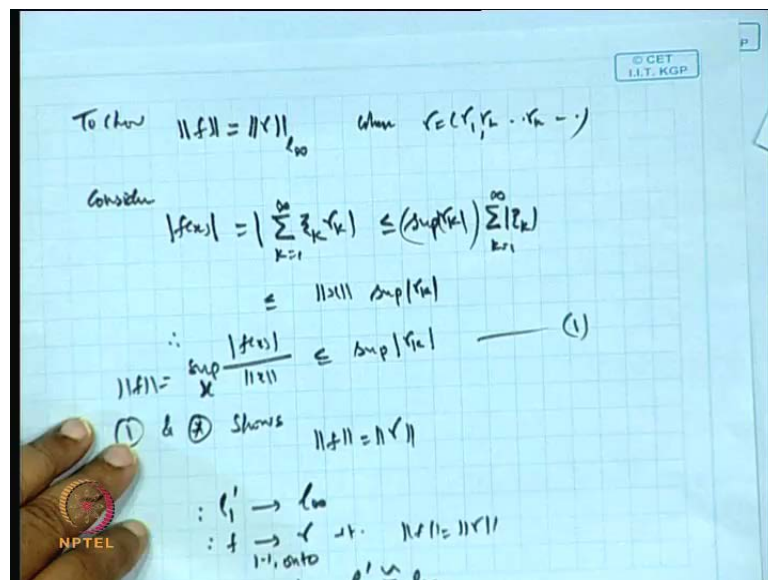 © CET
I.I.T. KGP
P
To show ||f|| = ||r||_{l∞} when r = (r₁, r₂ .. rₖ - .)
Consider
|f(x)| = | ∑_{k=1}^{∞} ξₖ rₖ | ≤ (sup|rₖ|) ∑_{k=1}^{∞} |ξₖ|
≤ ||x|| sup|rₖ|
∴ ||f|| = sup_x |f(x)| / ||x|| ≤ sup|rₖ| —— (1)
① & ⊛ shows ||f|| = ||r||
: l₁' → l∞
: f → r st. ||f|| = ||r||
1-1, onto
NPTEL